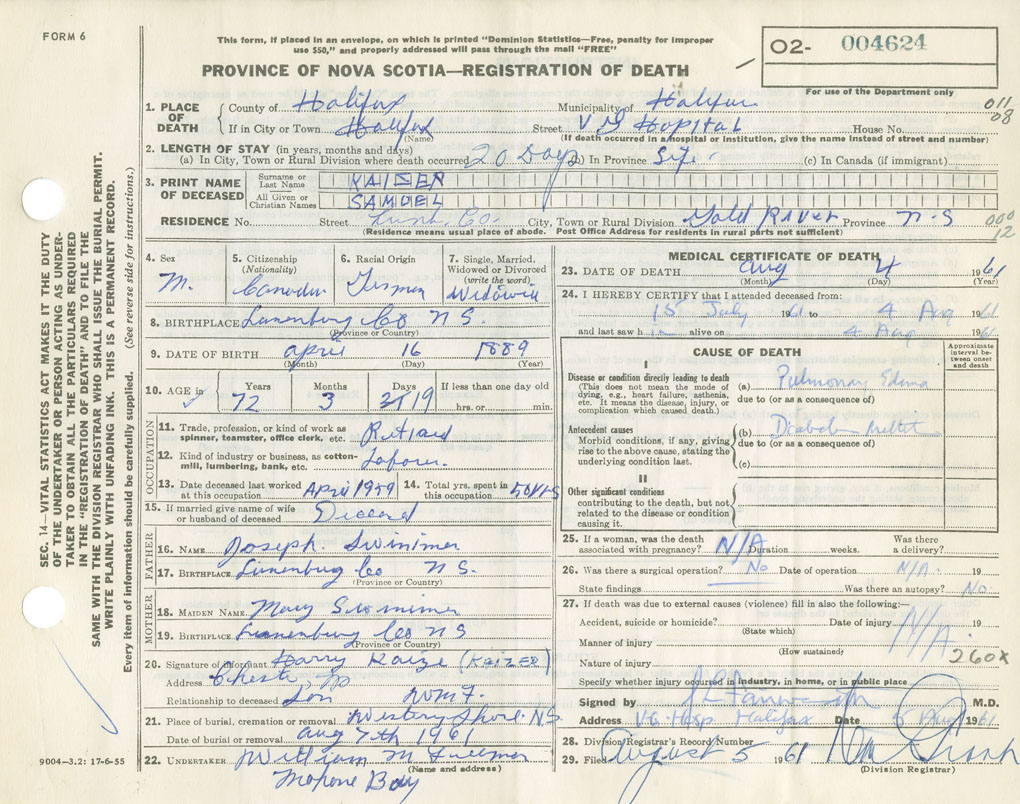 FORM 6
This form, if placed in an envelope, on which is printed "Dominion Statistics—Free, penalty for improper
use $50," and properly addressed will pass through the mail "FREE"
PROVINCE OF NOVA SCOTIA—REGISTRATION OF DEATH
O2- 004624
For use of the Department only
011
08
1. PLACE OF DEATH County of Halifax Municipality of Halifax
If in City or Town Halifax Street V G Hopital House No.
(Name) (If death occurred in a hospital or institution, give the name instead of street and number)
2. LENGTH OF STAY (in years, months and days)
(a) In City, Town or Rural Division where death occurred 20 Days (b) In Province Life (c) In Canada (if immigrant)
3. PRINT NAME OF DECEASED Surname or Last Name KAIZER
All Given or Christian Names SAMUEL
RESIDENCE No. Street Lun. Co. City, Town or Rural Division Gold River Province N-S
(Residence means usual place of abode. Post Office Address for residents in rural parts not sufficient)
000
12
4. Sex M.
5. Citizenship (Nationality) Canadian
6. Racial Origin German
7. Single, Married, Widowed or Divorced (write the word) Widowed
8. BIRTHPLACE Lunenburg Co N S.
(Province or Country)
9. DATE OF BIRTH April 16 1889
(Month) (Day) (Year)
10. AGE in Years 72 Months 3 Days 19 If less than one day old hrs. or min.
OCCUPATION
11. Trade, profession, or kind of work as spinner, teamster, office clerk, etc. Retired
12. Kind of industry or business, as cotton-mill, lumbering, bank, etc. Laborer.
13. Date deceased last worked at this occupation April 1959 14. Total yrs. spent in this occupation 50 yrs
15. If married give name of wife or husband of deceased
FATHER
16. NAME Joseph. Swinimer
17. BIRTHPLACE Lunenburg Co N S.
(Province or Country)
MOTHER
18. MAIDEN NAME Mary Swinimer
19. BIRTHPLACE Lunenburg Co N S
(Province or Country)
20. Signature of informant Harry Kaize (KAIZER)
Address Chester
Relationship to deceased Son
21. Place of burial, cremation or removal Western Shore. N.S
Date of burial or removal Aug 7th 1961
22. UNDERTAKER William M
(Name and address)
Mahone Bay
9004-3.2: 17-6-55
SEC. 14—VITAL STATISTICS ACT MAKES IT THE DUTY
OF THE UNDERTAKER OR PERSON ACTING AS UNDER-
TAKER TO OBTAIN ALL THE PARTICULARS REQUIRED
IN THE "REGISTRATION OF DEATH" AND TO FILE THE
SAME WITH THE DIVISION REGISTRAR WHO SHALL ISSUE THE BURIAL PERMIT.
WRITE PLAINLY WITH UNFADING INK. THIS IS A PERMANENT RECORD.
Every item of information should be carefully supplied. (See reverse side for instructions.)
MEDICAL CERTIFICATE OF DEATH
23. DATE OF DEATH Aug 4 1961
(Month) (Day) (Year)
24. I HEREBY CERTIFY that I attended deceased from:
15 July 1961 to 4 Aug 1961
and last saw h alive on 4 Aug 1961
CAUSE OF DEATH
Approximate interval between onset and death
I
Disease or condition directly leading to death
(This does not mean the mode of dying, e.g., heart failure, asthenia, etc. It means the disease, injury, or complication which caused death.)
(a) Pulmonary Edema
due to (or as a consequence of)
Antecedent causes
Morbid conditions, if any, giving rise to the above cause, stating the underlying condition last.
(b) Diabetes Mellitus
due to (or as a consequence of)
(c)
II
Other significant conditions
contributing to the death, but not related to the disease or condition causing it.
25. If a woman, was the death associated with pregnancy? N/A Duration weeks. Was there a delivery?
26. Was there a surgical operation? No Date of operation N/A. 19
State findings Was there an autopsy? No
27. If death was due to external causes (violence) fill in also the following:—
Accident, suicide or homicide? Date of injury 19
(State which)
N/A.
Manner of injury
(How sustained)
260X
Nature of injury
Specify whether injury occurred in industry, in home, or in public place
Signed by M.D.
Address V.G. Hosp. Halifax Date 5 Aug 1961
28. Division Registrar's Record Number
29. Filed August 5 1961
(Division Registrar)